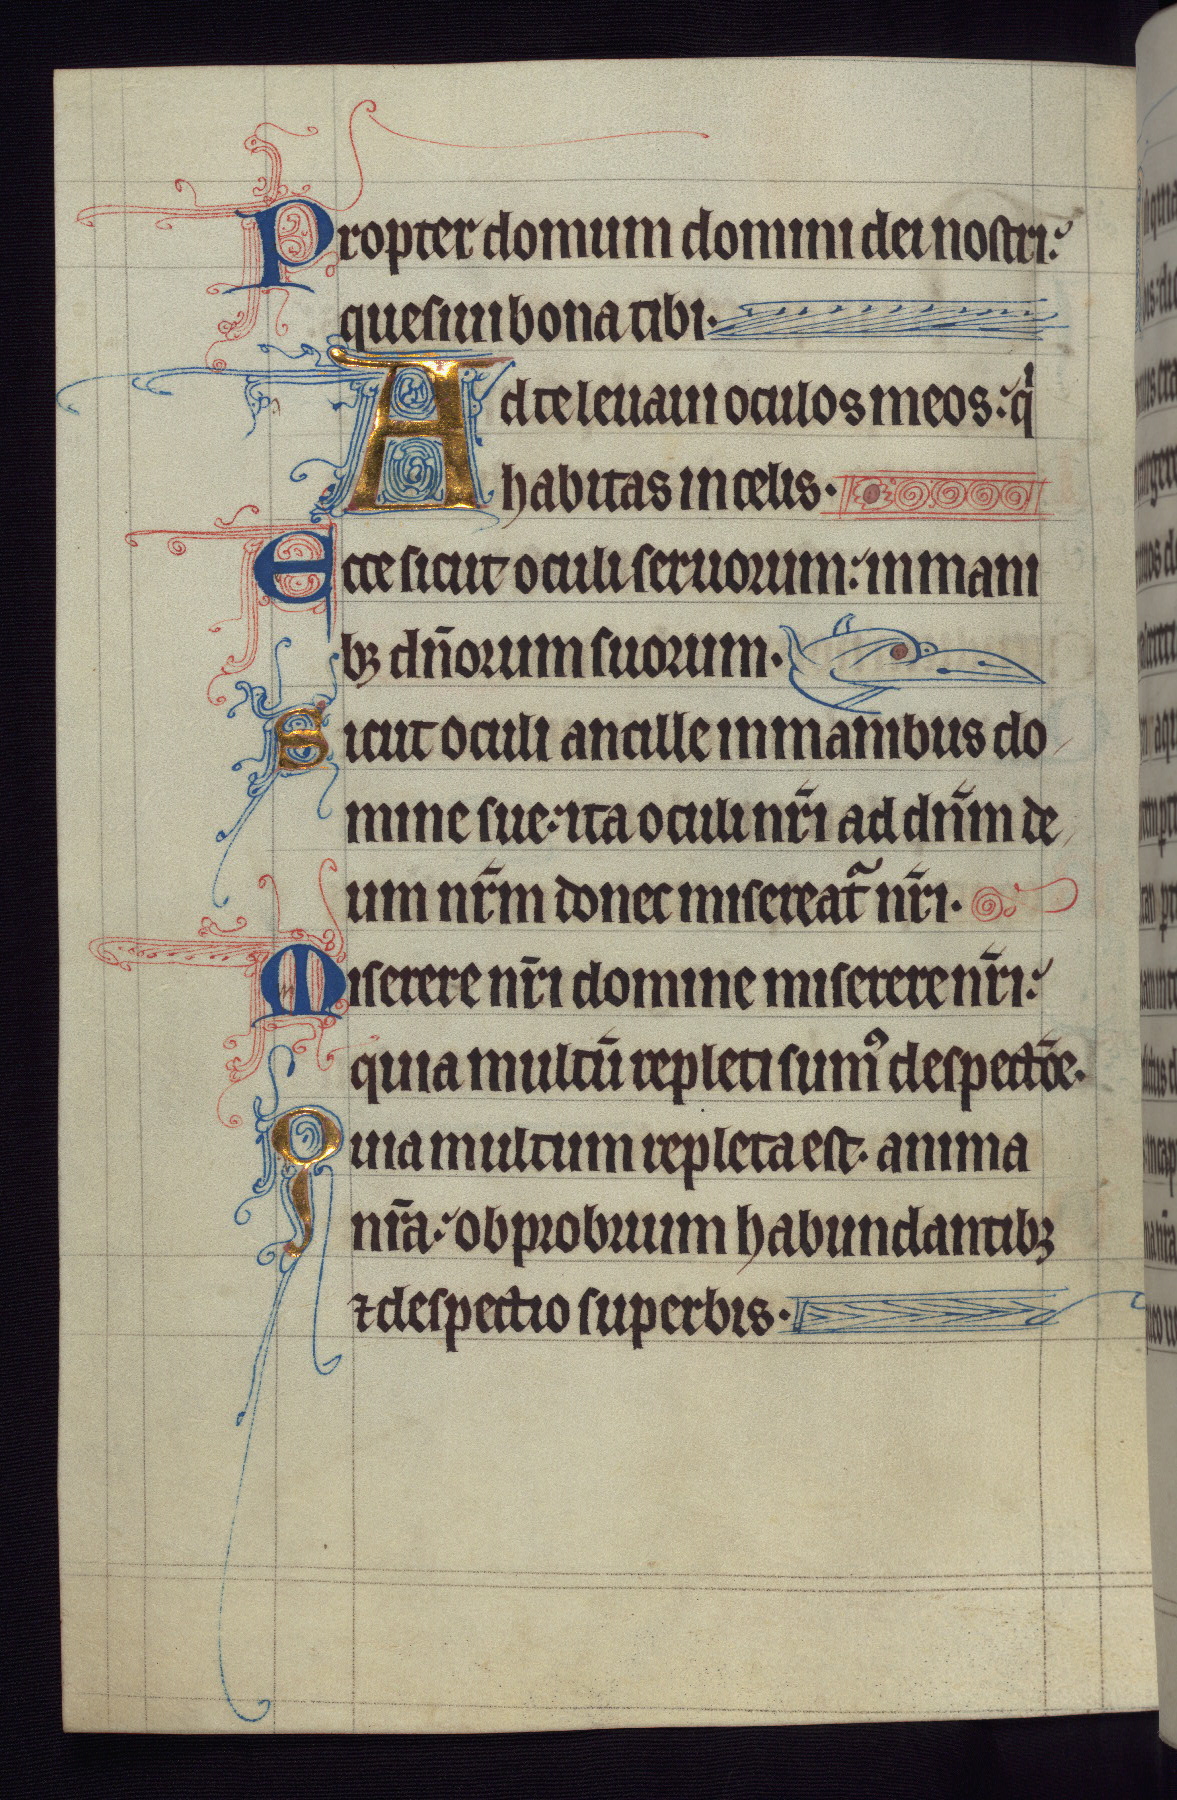 Propter domum domini dei nostri:
quesiui bona tibi.
Ad te leuaui oculos meos: qͥ
habitas in celis.
Ecce sicut oculi seruorum: in mani
bꝫ dn̄orum suorum.
Sicut oculi ancille in manibus do
mine sue: ita oculi nr̄i ad dn̄m de
um nr̄m donec misereat᷑ nr̄i.
Miserere nr̄i domine miserere nr̄i:
quia multū repleti sumꝰ despectōe.
Quia multum repleta est. anima
nr̄a: obprobrium habundantibꝫ
⁊ despectio superbis.